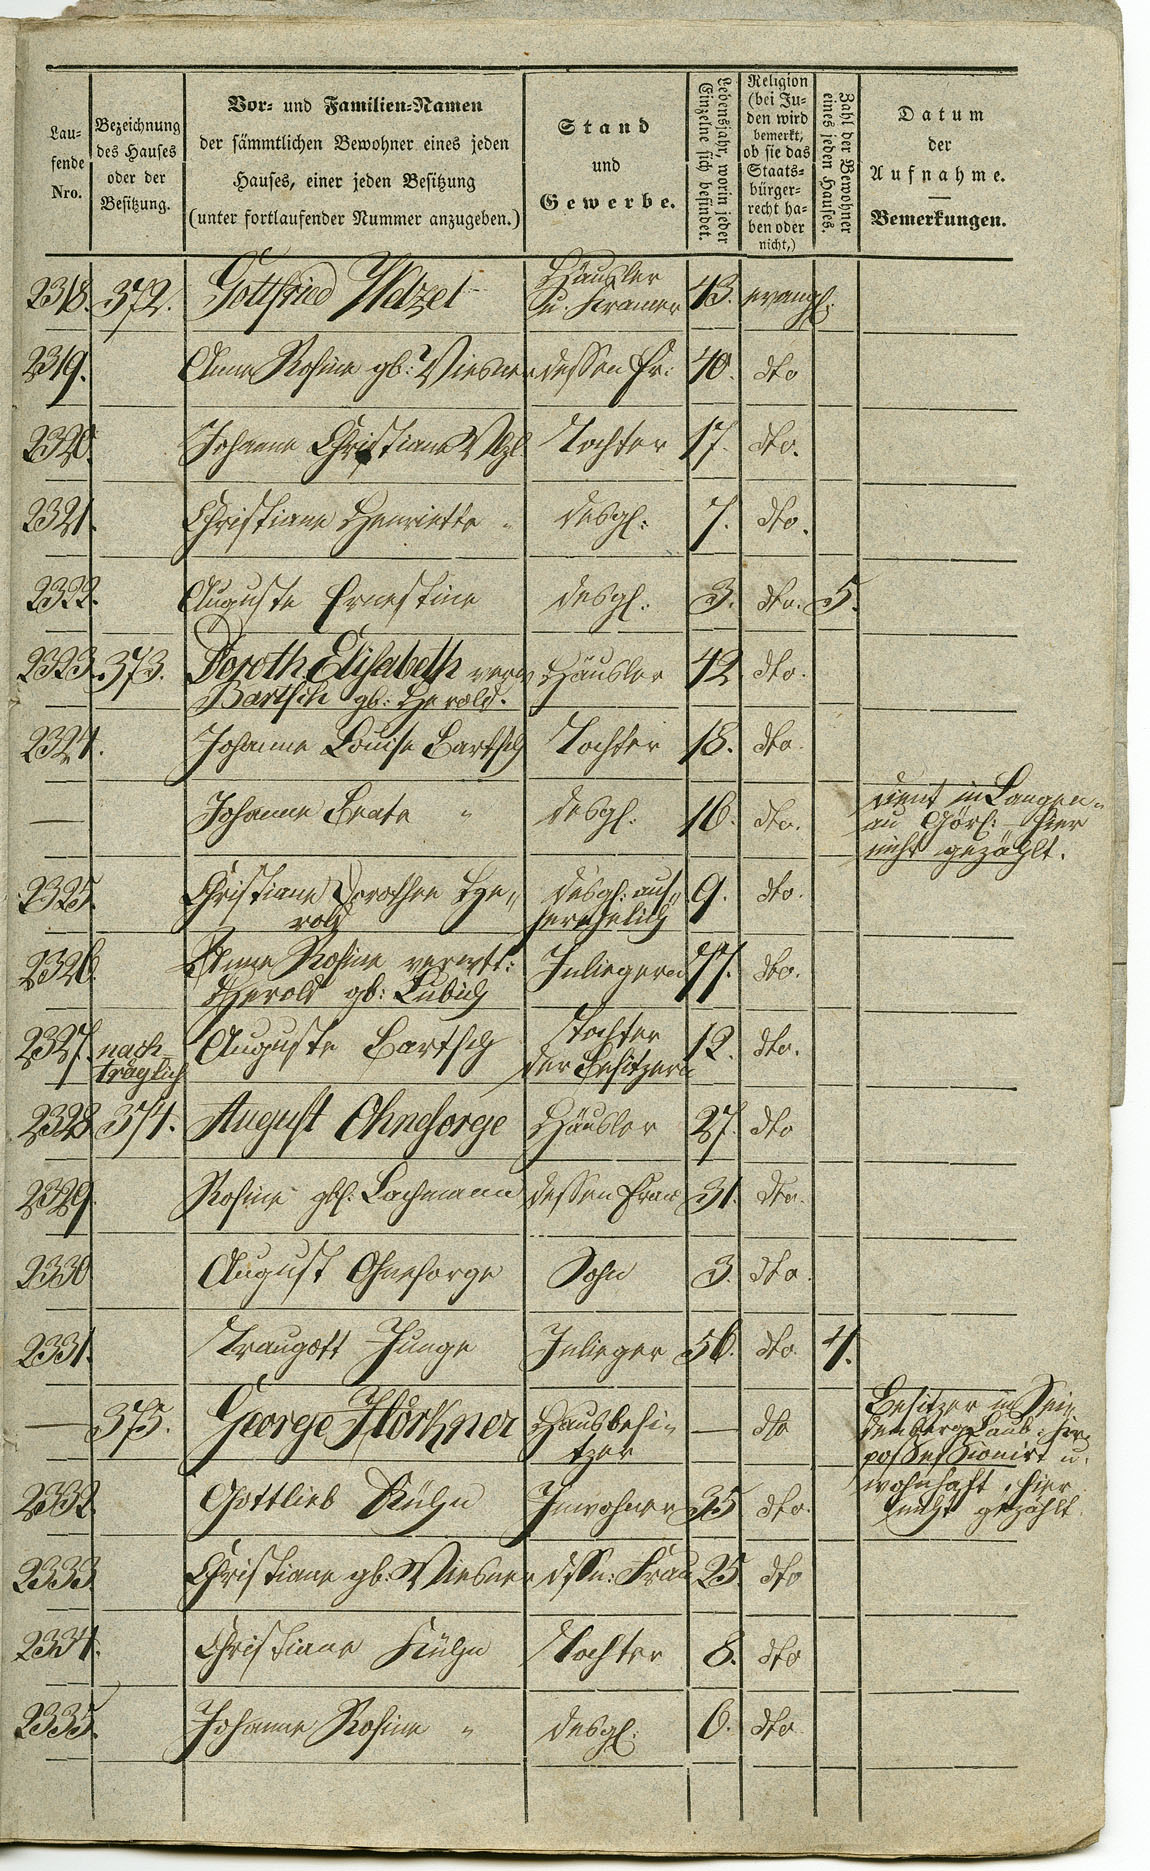 Lau-
fende
Nro.
Bezeichnung
des Hauses
oder der
Besitzung.
Vor- und Familien-Namen
der sämmtlichen Bewohner eines jeden
Hauses, einer jeden Besitzung
(unter fortlaufender Nummer anzugeben.)
Stand
und
Gewerbe.
Lebensjahr, worin jeder
Einzelne sich befindet.
Religion
(bei Ju-
den wird
bemerkt,
ob sie das
Staats-
bürger-
recht ha-
ben oder
nicht,)
Zahl der Bewohner
eines jeden Hauses.
Datum
der
Aufnahme.
Bemerkungen.
2318. 372. Gottfried Wetzel Häusler u. Kramer 43. evangl.
2319. Anna Rosine gb: Wiesner dessen Fr: 40. dto
2320. Johanne Christiane Wzl Tochter 17. dto.
2321. Christiane Henriette " desgl: 7. dto.
2322. Auguste Ernestine desgl: 3. dto. 5.
2323. 373. Doroth. Elisabeth verw Häusler 42 dto.
Bartsch gb: Herold.
2324. Johanne Louise Bartsch Tochter 18. dto.
— Johanne Beate " desgl: 16. dto. dient in Langen-
au Görl: hier
nicht gezählt.
2325. Christiane Dorothee He- desgl: aus- 9. dto.
rold serehelich
2326. Anne Rosine verwtt: Inliegerin 77. dto.
Herold gb: Lubich
2327. nach- Auguste Bartsch Tochter 12. dto.
träglich der Besitzerin
2328. 374. August Ohnesorge Häusler 27. dto
2329. Rosine gb: Lachmann dessen Frau 31. dto.
2330 August Ohnesorge Sohn 3. dto.
2331. Traugott Junge Inlieger 56. dto. 4.
— 375. George Hörkner Hausbesi- — dto Besitzer in Sei-
tzer denberg Laub: Kr.
possessionirt u.
2332. Gottlieb Kühn Inwohner 35 dto. wohnhaft, hier
nicht gezählt.
2333 Christiane gb: Wiesner dssn: Frau 25. dto
2334. Christiane Kühn Tochter 8. dto
2335. Johanne Rosine " desgl: 6. dto